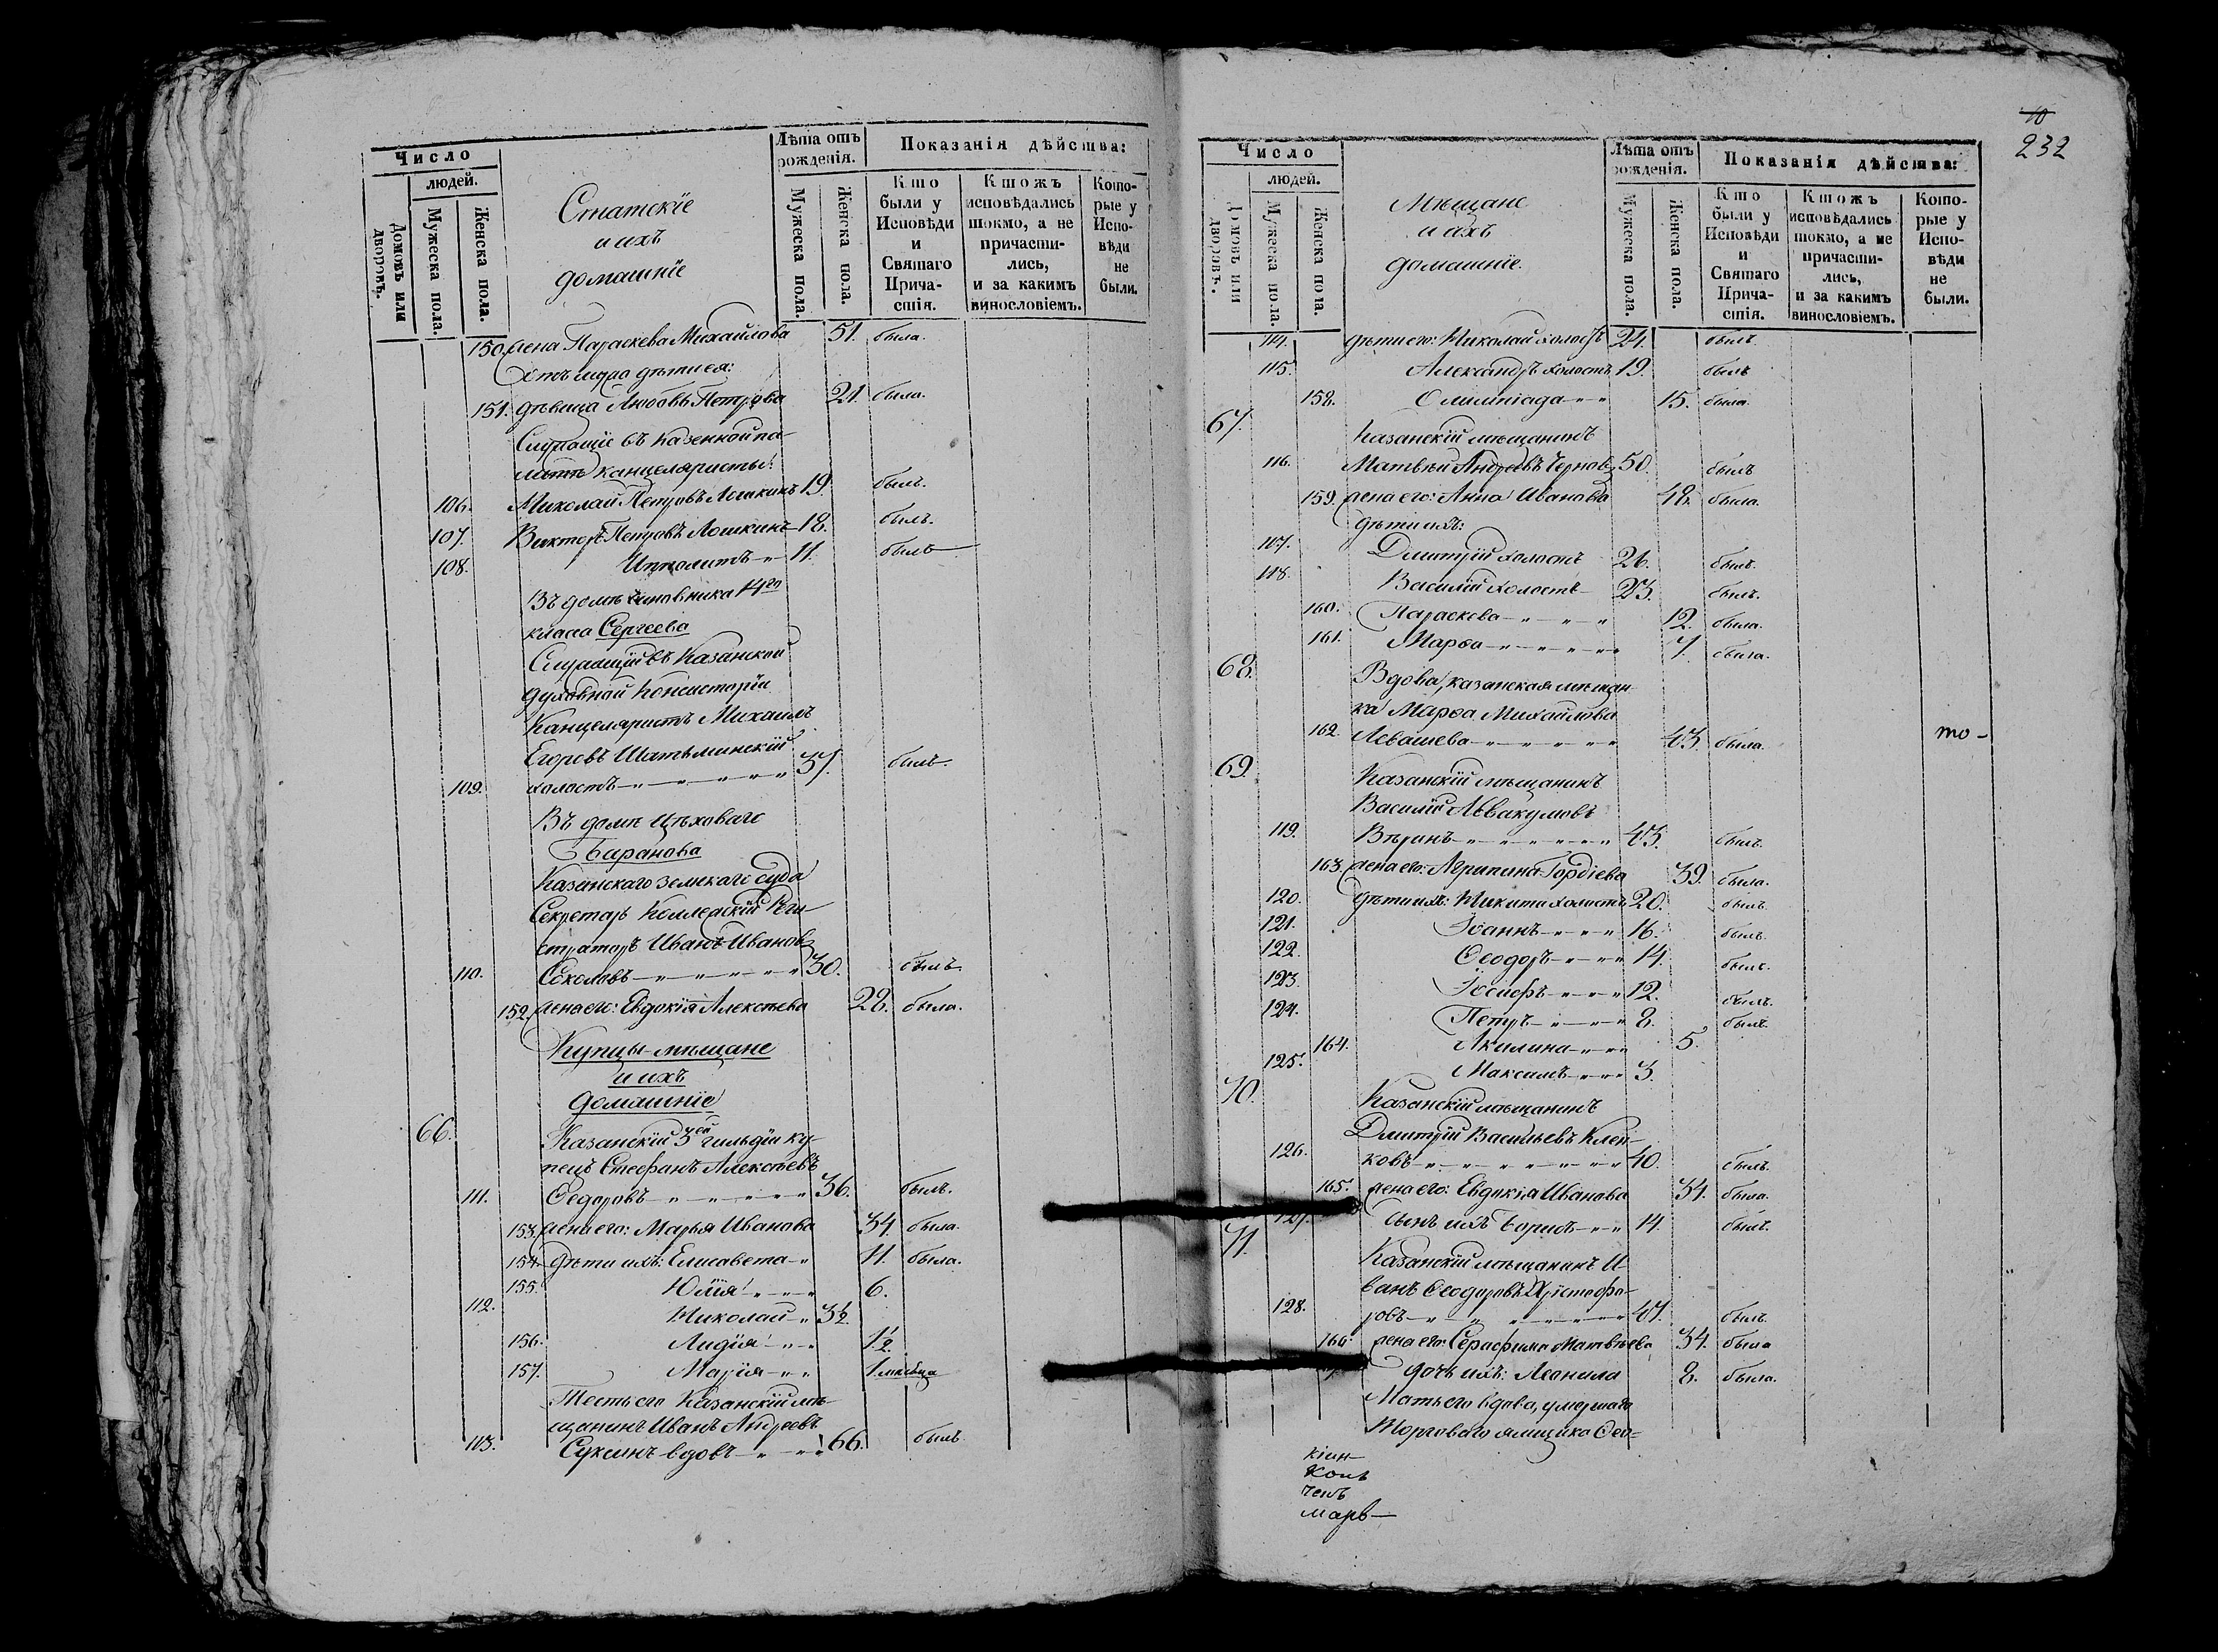 Число
людей.
Домовъ или дворовъ.
Мужеска пола.
Женска пола.
Статскіе
и ихъ
домашніе
Лѣта отъ рожденія.
Мужеска пола.
Женска пола.
Показанія дѣйства:
Кто были у Исповѣди и Святаго Причастія.
Ктожъ исповѣдались токмо, а не причастились, и за какимъ винословіемъ.
Которые у Исповѣди не были.
150. жена Параскева Михайлова 51. была.
дѣти ея:
151. дѣвица Любовь Петрова 21. была.
Служащіе въ казенной па-
латѣ канцеляристы:
106. Николай Петровъ Лошкинъ 19. былъ.
107. Викторъ Петровъ Лошкинъ 18. былъ.
108. Ипполитъ 11. былъ
Въ домѣ чиновника 14го
класса Сергеева
Служащій въ Казанской
духовной Консисторіи
Канцеляристъ Михаилъ
Егоровъ Шатьминскій
109. холостъ 37. былъ.
Въ домѣ Цѣховаго
Баранова
Казанскаго земскаго суда
Секретарь Коллежскій Реги-
страторъ Иванъ Ивановъ
110. Соколовъ 30. былъ.
152. жена его: Евдокія Алексѣева 28. была.
Купцы-мѣщане
и ихъ
домашніе
66. Казанскій 3ей гильдіи ку-
пецъ Стефанъ Алексѣевъ
111. Федоровъ 36. былъ.
153. жена его: Марья Иванова 34. была.
154. дѣти ихъ: Елисавета 11. была.
155. Юлія 6.
112. Николай 3½
156. Лидія 1½
157. Марія 1 мѣсяца
Тесть его Казанскій мѣ-
щанинъ Иванъ Андреевъ
113. Сукинъ вдовъ 66. былъ.
10
232
Число
людей.
Домовъ или дворовъ.
Мужеска пола.
Женска пола.
Мѣщане
и ихъ
домашніе.
Лѣта отъ рожденія.
Мужеска пола.
Женска пола.
Показанія дѣйства:
Кто были у Исповѣди и Святаго Причастія.
Ктожъ исповѣдались токмо, а не причастились, и за какимъ винословіемъ.
Которые у Исповѣди не были.
114. дѣти его: Николай холостъ 24. былъ.
115. Александръ холостъ 19. былъ
158. Олимпіада 15. была.
67. Казанскій мѣщанинъ
116. Матвѣй Андреевъ Черновъ 50. былъ
159. жена его: Анна Иванова 48. была.
дѣти ихъ:
117. Дмитрій холостъ 26. былъ.
118. Василій холостъ 23. былъ.
160. Параскева 12. была.
161. Марѳа 7. была.
68. Вдова, казанская мѣщан-
ка Марѳа Михайлова
162. Левашева 43. была. то-
69. Казанскій мѣщанинъ
Василій Аввакумовъ
119. Вѣринъ 43. былъ.
163. жена его: Агрипина Гордіева 39. была.
120. дѣти ихъ: Никита холостъ 20. былъ.
121. Іоаннъ 16. былъ.
122. Ѳеодоръ 14. былъ.
123. Іосифъ 12. былъ.
124. Петръ 8. былъ.
164. Акилина 5.
125. Максимъ 3.
70. Казанскій мѣщанинъ
Дмитрій Васильевъ Клей-
126. ковъ 40. былъ.
165. жена его: Евдокія Иванова 34. была.
127. сынъ ихъ Борисъ 14. былъ.
71. Казанскій мѣщанинъ И-
ванъ Ѳеодоровъ Христофо-
128. ровъ 47. былъ.
166. жена его: Серафима Матвѣева 34. была
дочь ихъ: Леонила 8. была.
Мать его вдова, умершаго
Торговаго ямщика Ѳео-
кіин-
Конь
марв-